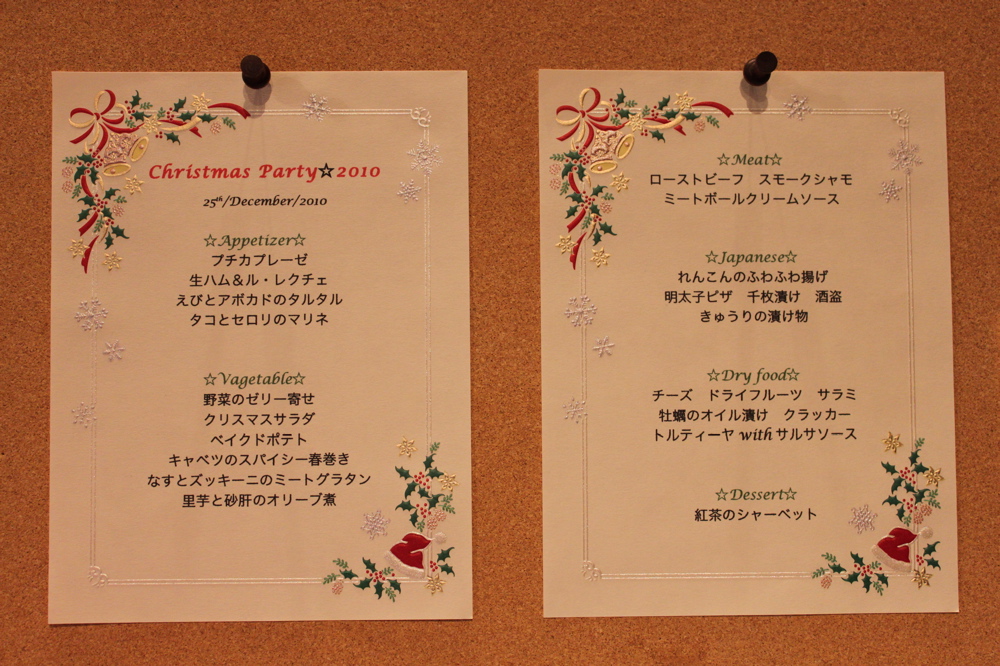 Christmas Party☆2010
25th/December/2010
☆Appetizer☆
プチカプレーゼ
生ハム＆ル・レクチェ
えびとアボカドのタルタル
タコとセロリのマリネ
☆Vagetable☆
野菜のゼリー寄せ
クリスマスサラダ
ベイクドポテト
キャベツのスパイシー春巻き
なすとズッキーニのミートグラタン
里芋と砂肝のオリーブ煮
☆Meat☆
ローストビーフ　スモークシャモ
ミートボールクリームソース
☆Japanese☆
れんこんのふわふわ揚げ
明太子ピザ　千枚漬け　酒盗
きゅうりの漬け物
☆Dry food☆
チーズ　ドライフルーツ　サラミ
牡蠣のオイル漬け　クラッカー
トルティーヤ with サルサソース
☆Dessert☆
紅茶のシャーベット